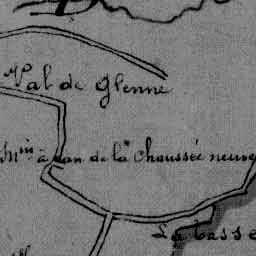 Val de Glenne
Mⁱⁿ à eau de la Chaussée neuve
La Casse